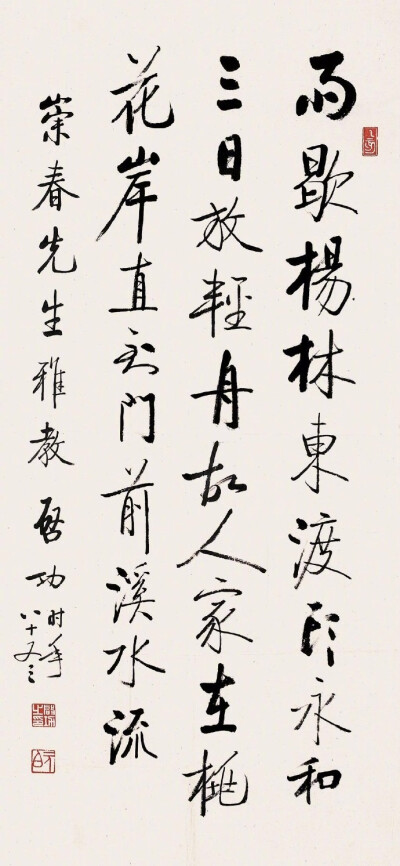 雨歇楊林東渡頭永和
三日放輕舟故人家在桃
花岸直到門前溪水流
崇春先生雅教 啓功 时年八十又三